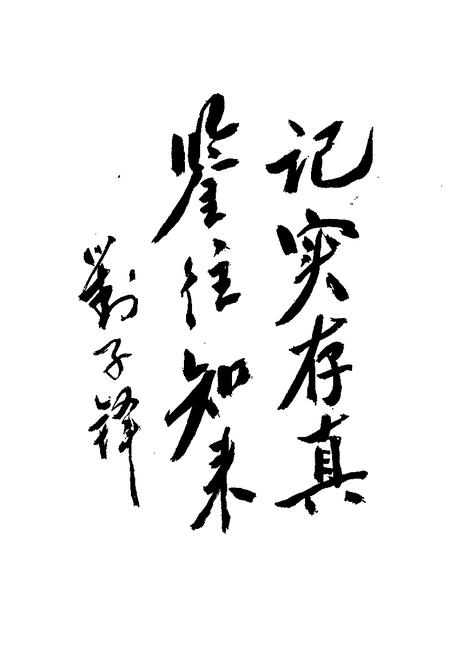 记实存真
鉴往知来
劉子鋒